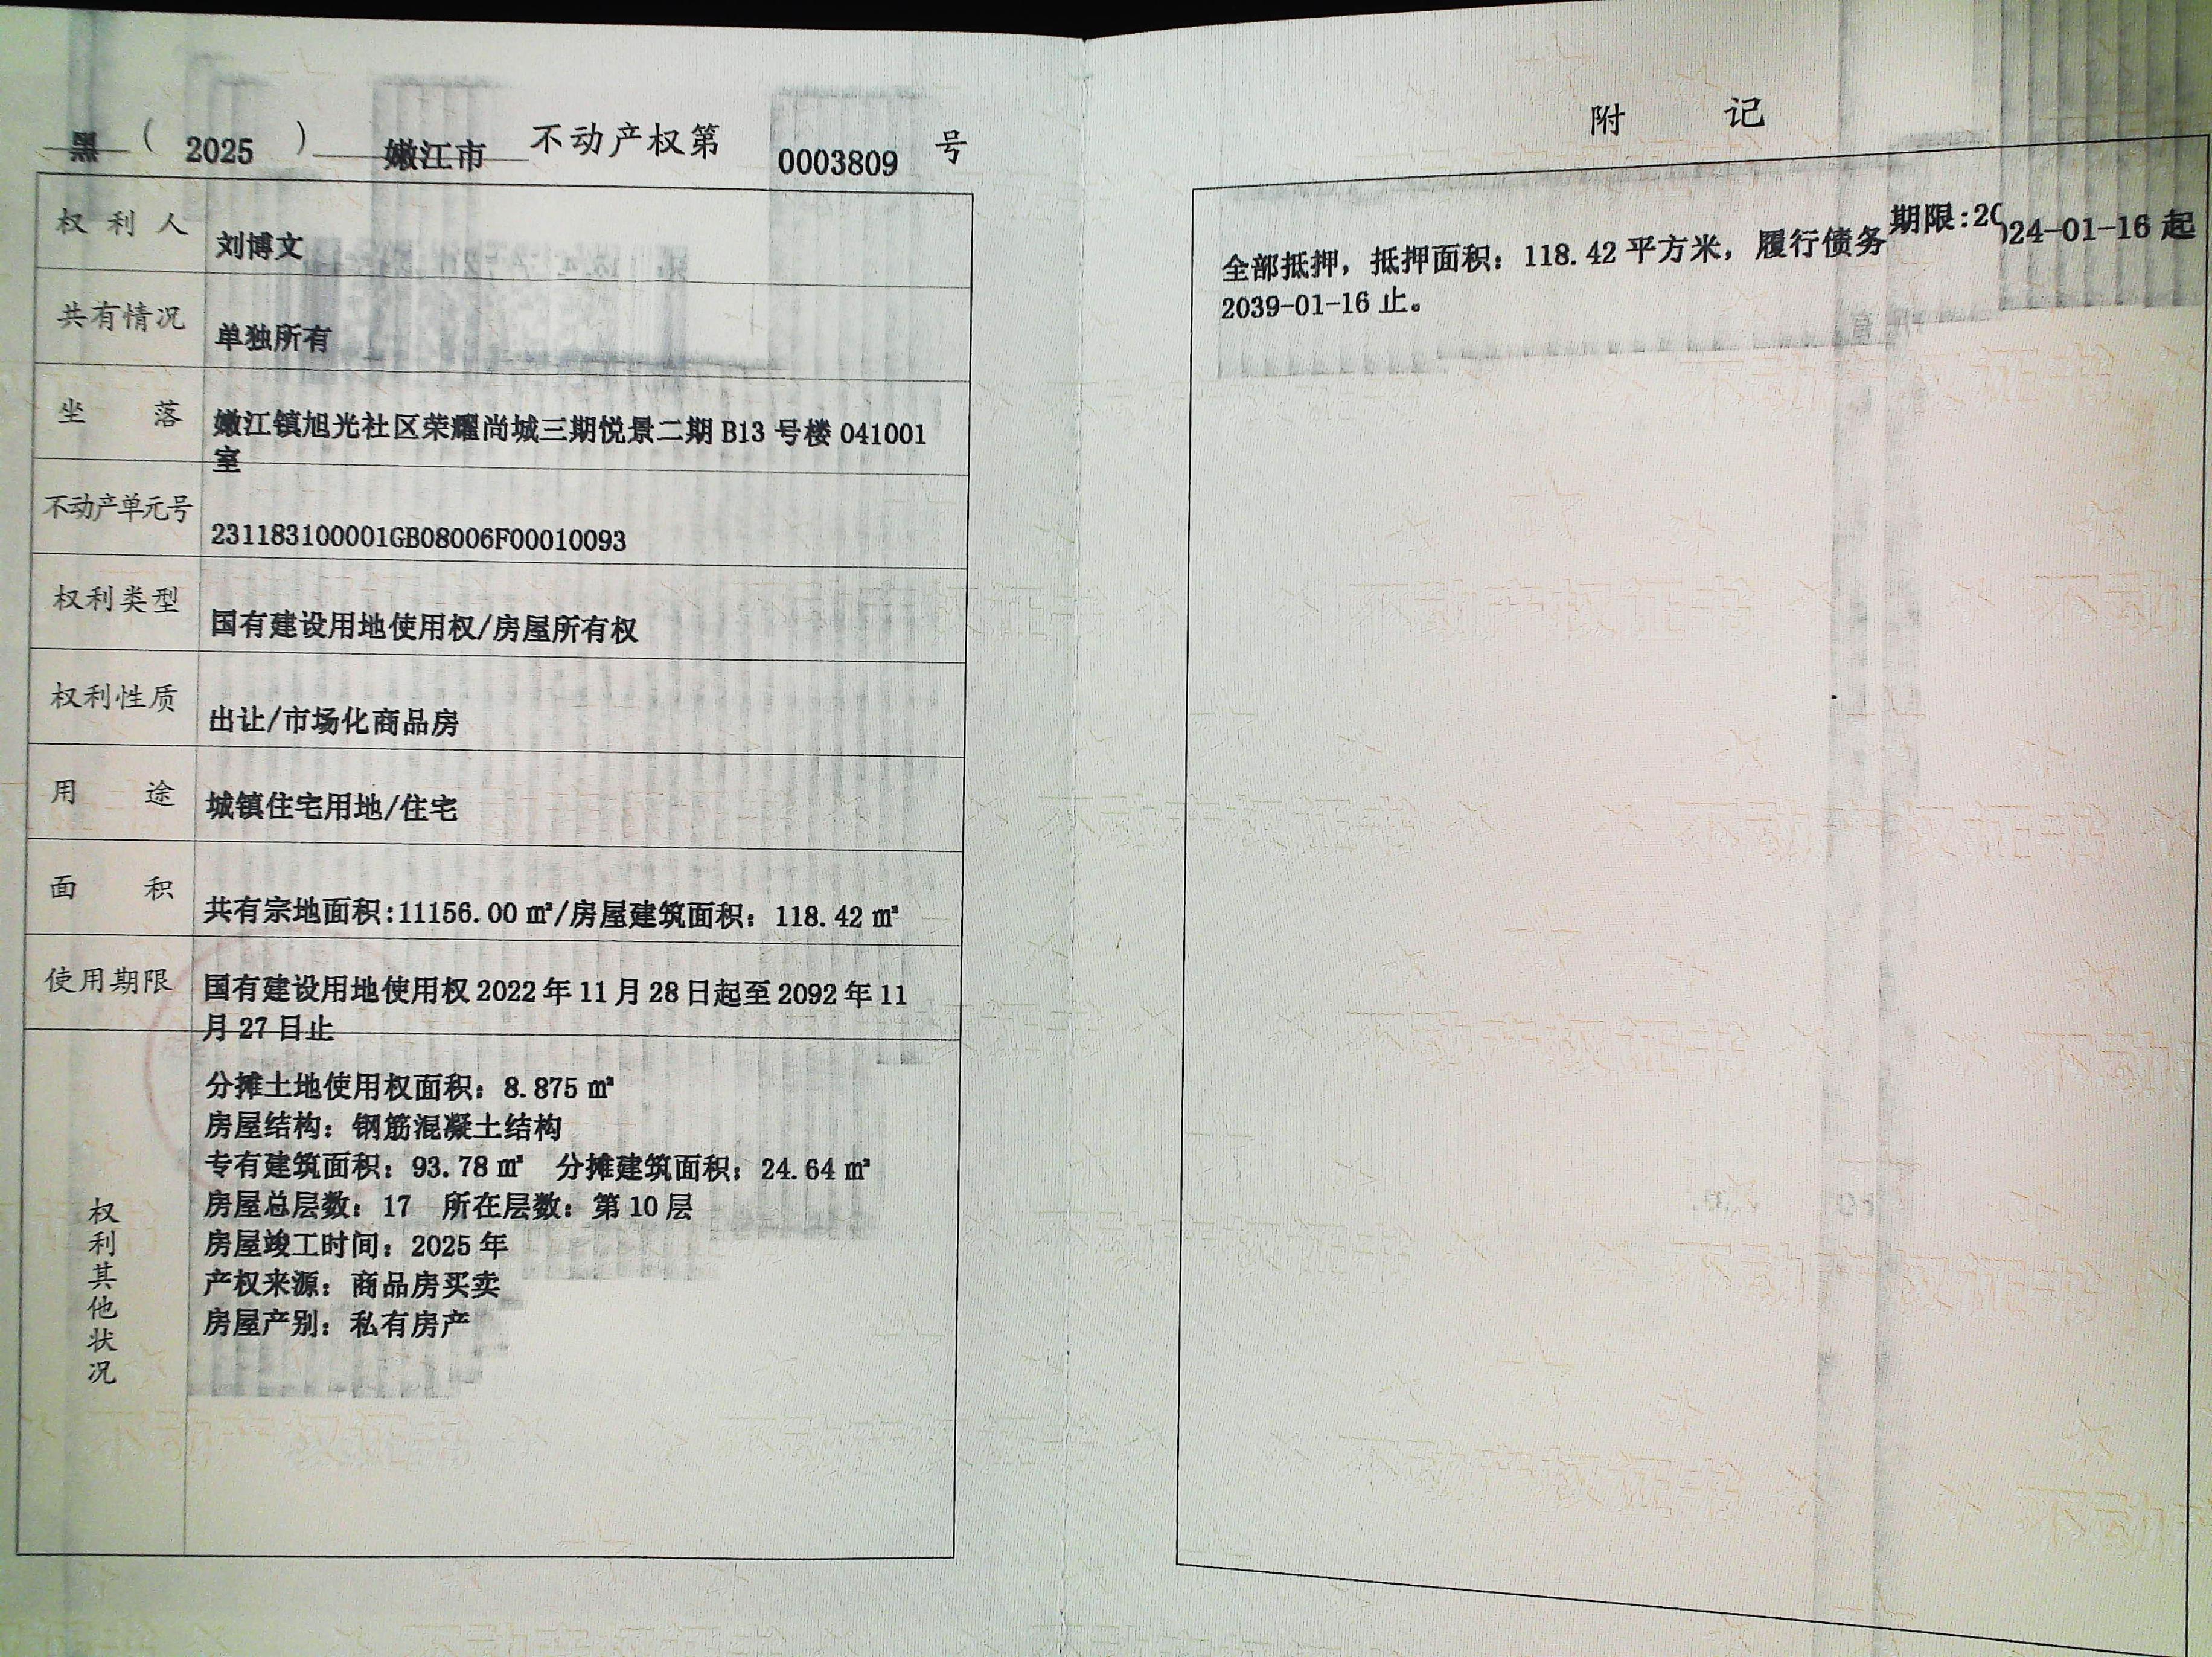 黑（2025）嫩江市 不动产权第 0003809 号
权利人 刘博文
共有情况 单独所有
坐落 嫩江镇旭光社区荣耀尚城三期悦景二期 B13 号楼 041001
室
不动产单元号 231183100001GB08006F00010093
权利类型 国有建设用地使用权/房屋所有权
权利性质 出让/市场化商品房
用途 城镇住宅用地/住宅
面积 共有宗地面积:11156.00 ㎡/房屋建筑面积：118.42 ㎡
使用期限 国有建设用地使用权 2022 年 11 月 28 日起至 2092 年 11
月 27 日止
权利其他状况
分摊土地使用权面积：8.875 ㎡
房屋结构：钢筋混凝土结构
专有建筑面积：93.78 ㎡ 分摊建筑面积：24.64 ㎡
房屋总层数：17 所在层数：第 10 层
房屋竣工时间：2025 年
产权来源：商品房买卖
房屋产别：私有房产
附记
全部抵押，抵押面积：118.42 平方米，履行债务期限:2024-01-16 起
2039-01-16 止。